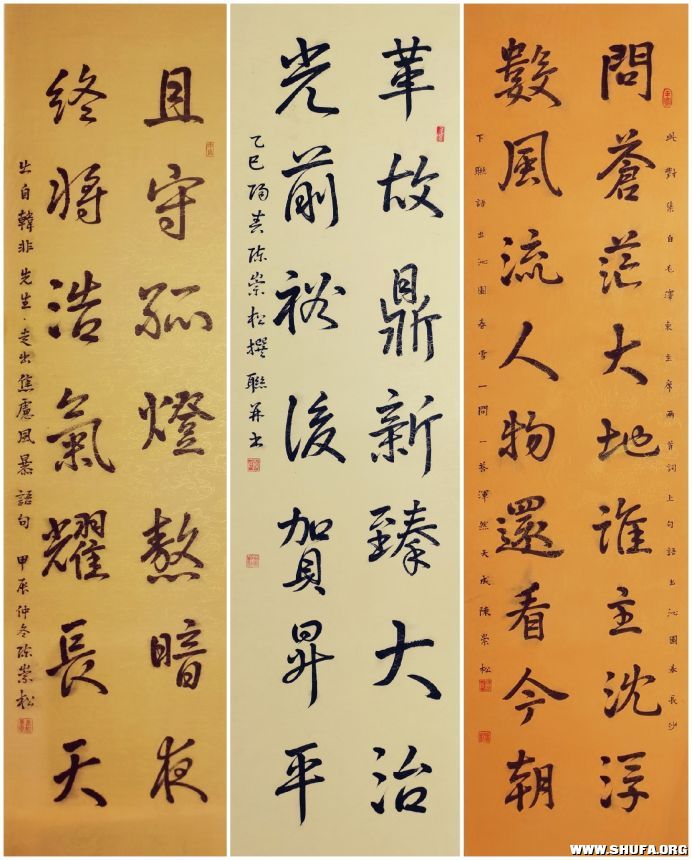 此對集自毛澤東主席兩首詞上句語出沁園春長沙
問蒼茫大地誰主沈浮
數風流人物還看今朝
下聯語出沁園春雪一問一答渾然天成陳崇松
革故鼎新臻大治
光前裕後賀昇平
乙巳陽春陈崇松撰聯并书
且守孤燈熬暗夜
終將浩氣耀長天
出自韓非先生·走出焦慮風暴語句 甲辰仲冬陈崇松
WWW.SHUFA.ORG